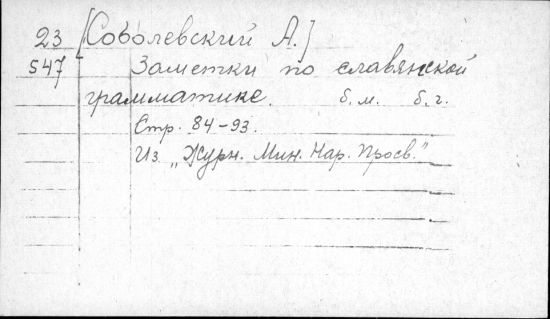 23 [Соболевский А.]
547 Заметки по славянской
грамматике. б.м. б.г.
Стр. 84-93.
Из „Журн. Мин. Нар. Просв."